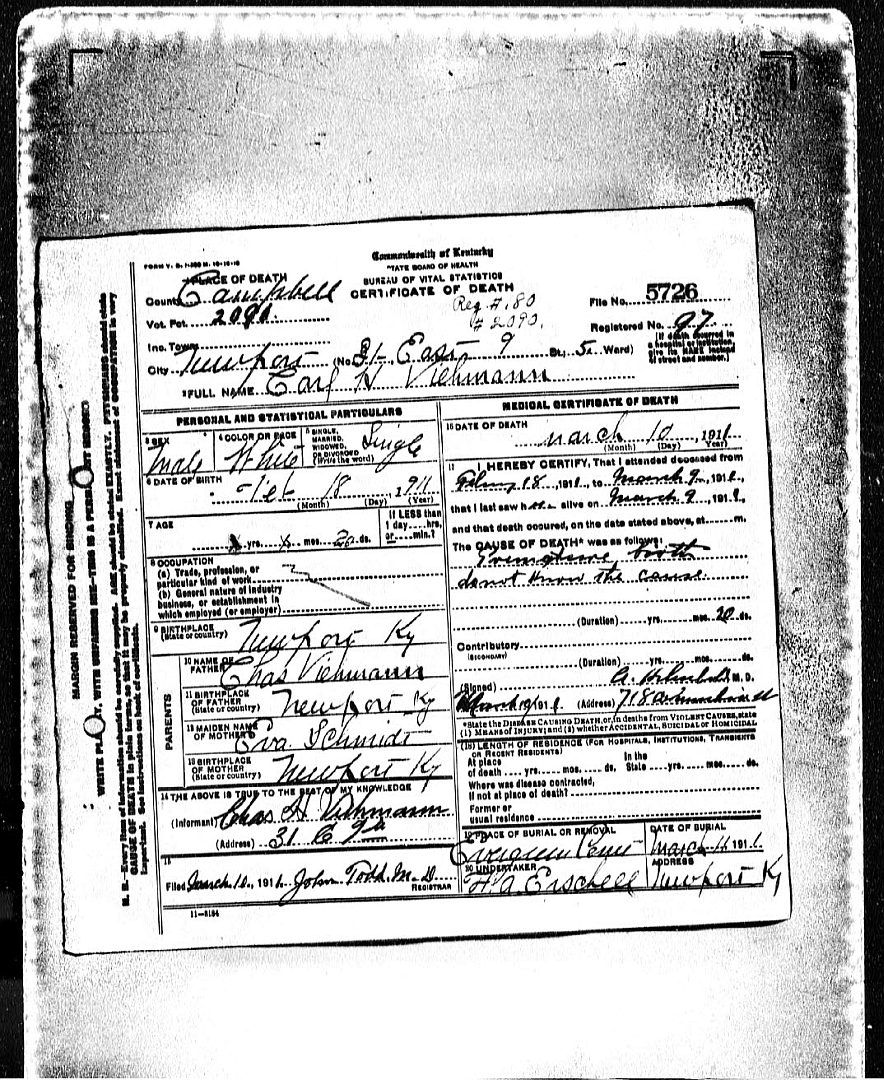 FORM V. S. 1-
Commonwealth of Kentucky
STATE BOARD OF HEALTH
BUREAU OF VITAL STATISTICS
CERTIFICATE OF DEATH
1 PLACE OF DEATH
County Campbell
Reg #. 80
# 2090.
File No. 5726
Vot. Pct. 2090.
Registered No. 97
Inc. Town
(If death occurred in a hospital or institution, give its NAME instead of street and number.)
City Newport (No. 31- East 9 St.; 5- Ward)
2 FULL NAME Carl H Viehmann
PERSONAL AND STATISTICAL PARTICULARS
3 SEX Male
4 COLOR OR RACE White
5 SINGLE, MARRIED, WIDOWED, OR DIVORCED (Write the word) Single
6 DATE OF BIRTH Feb 18, 1911
(Month) (Day) (Year)
7 AGE x yrs. x mos. 20 ds.
If LESS than 1 day....hrs. or....min.?
8 OCCUPATION
(a) Trade, profession, or particular kind of work
(b) General nature of industry business, or establishment in which employed (or employer)
9 BIRTHPLACE (State or country) Newport Ky
PARENTS
10 NAME OF FATHER Chas Viehmann
11 BIRTHPLACE OF FATHER (State or country) Newport Ky
12 MAIDEN NAME OF MOTHER Eva Schmidt
13 BIRTHPLACE OF MOTHER (State or country) Newport Ky
14 THE ABOVE IS TRUE TO THE BEST OF MY KNOWLEDGE
(Informant) Chas H Viehmann
(Address) 31 E 9th
15
Filed March 10, 1911 John Todd M.D
REGISTRAR
11-5184
MEDICAL CERTIFICATE OF DEATH
16 DATE OF DEATH
March 10, 1911
(Month) (Day) Year)
17 I HEREBY CERTIFY, That I attended deceased from
18, 1911, to March 9, 1911,
that I last saw h alive on March 9, 1911,
and that death occured, on the date stated above, at m.
The CAUSE OF DEATH* was as follows:
Premature birth
do not know the cause.
(Duration) yrs. mos. 20 ds.
Contributory
(SECONDARY)
(Duration) yrs. mos. ds.
(Signed) A. M. D.
March 1911. (Address) 718
*State the DISEASE CAUSING DEATH, or, in deaths from VIOLENT CAUSES, state
(1) MEANS OF INJURY; and (2) whether ACCIDENTAL, SUICIDAL or HOMICIDAL
(18) LENGTH OF RESIDENCE (FOR HOSPITALS, INSTITUTIONS, TRANSIENTS OR RECENT RESIDENTS)
At place of death yrs. mos. ds. In the State yrs. mos. ds.
Where was disease contracted, if not at place of death?
Former or usual residence
19 PLACE OF BURIAL OR REMOVAL
Evergreen Cem
DATE OF BURIAL
March 11 1911
20 UNDERTAKER
ADDRESS
Newport Ky
MARGIN RESERVED FOR BINDING
WRITE PLAINLY, WITH UNFADING INK—THIS IS A PERMANENT RECORD
N. B.—Every item of information should be carefully supplied. AGE should be stated EXACTLY. PHYSICIANS should state
CAUSE OF DEATH in plain terms, so that it may be properly classified. Exact statement of OCCUPATION is very
important. See instructions on back of certificate.